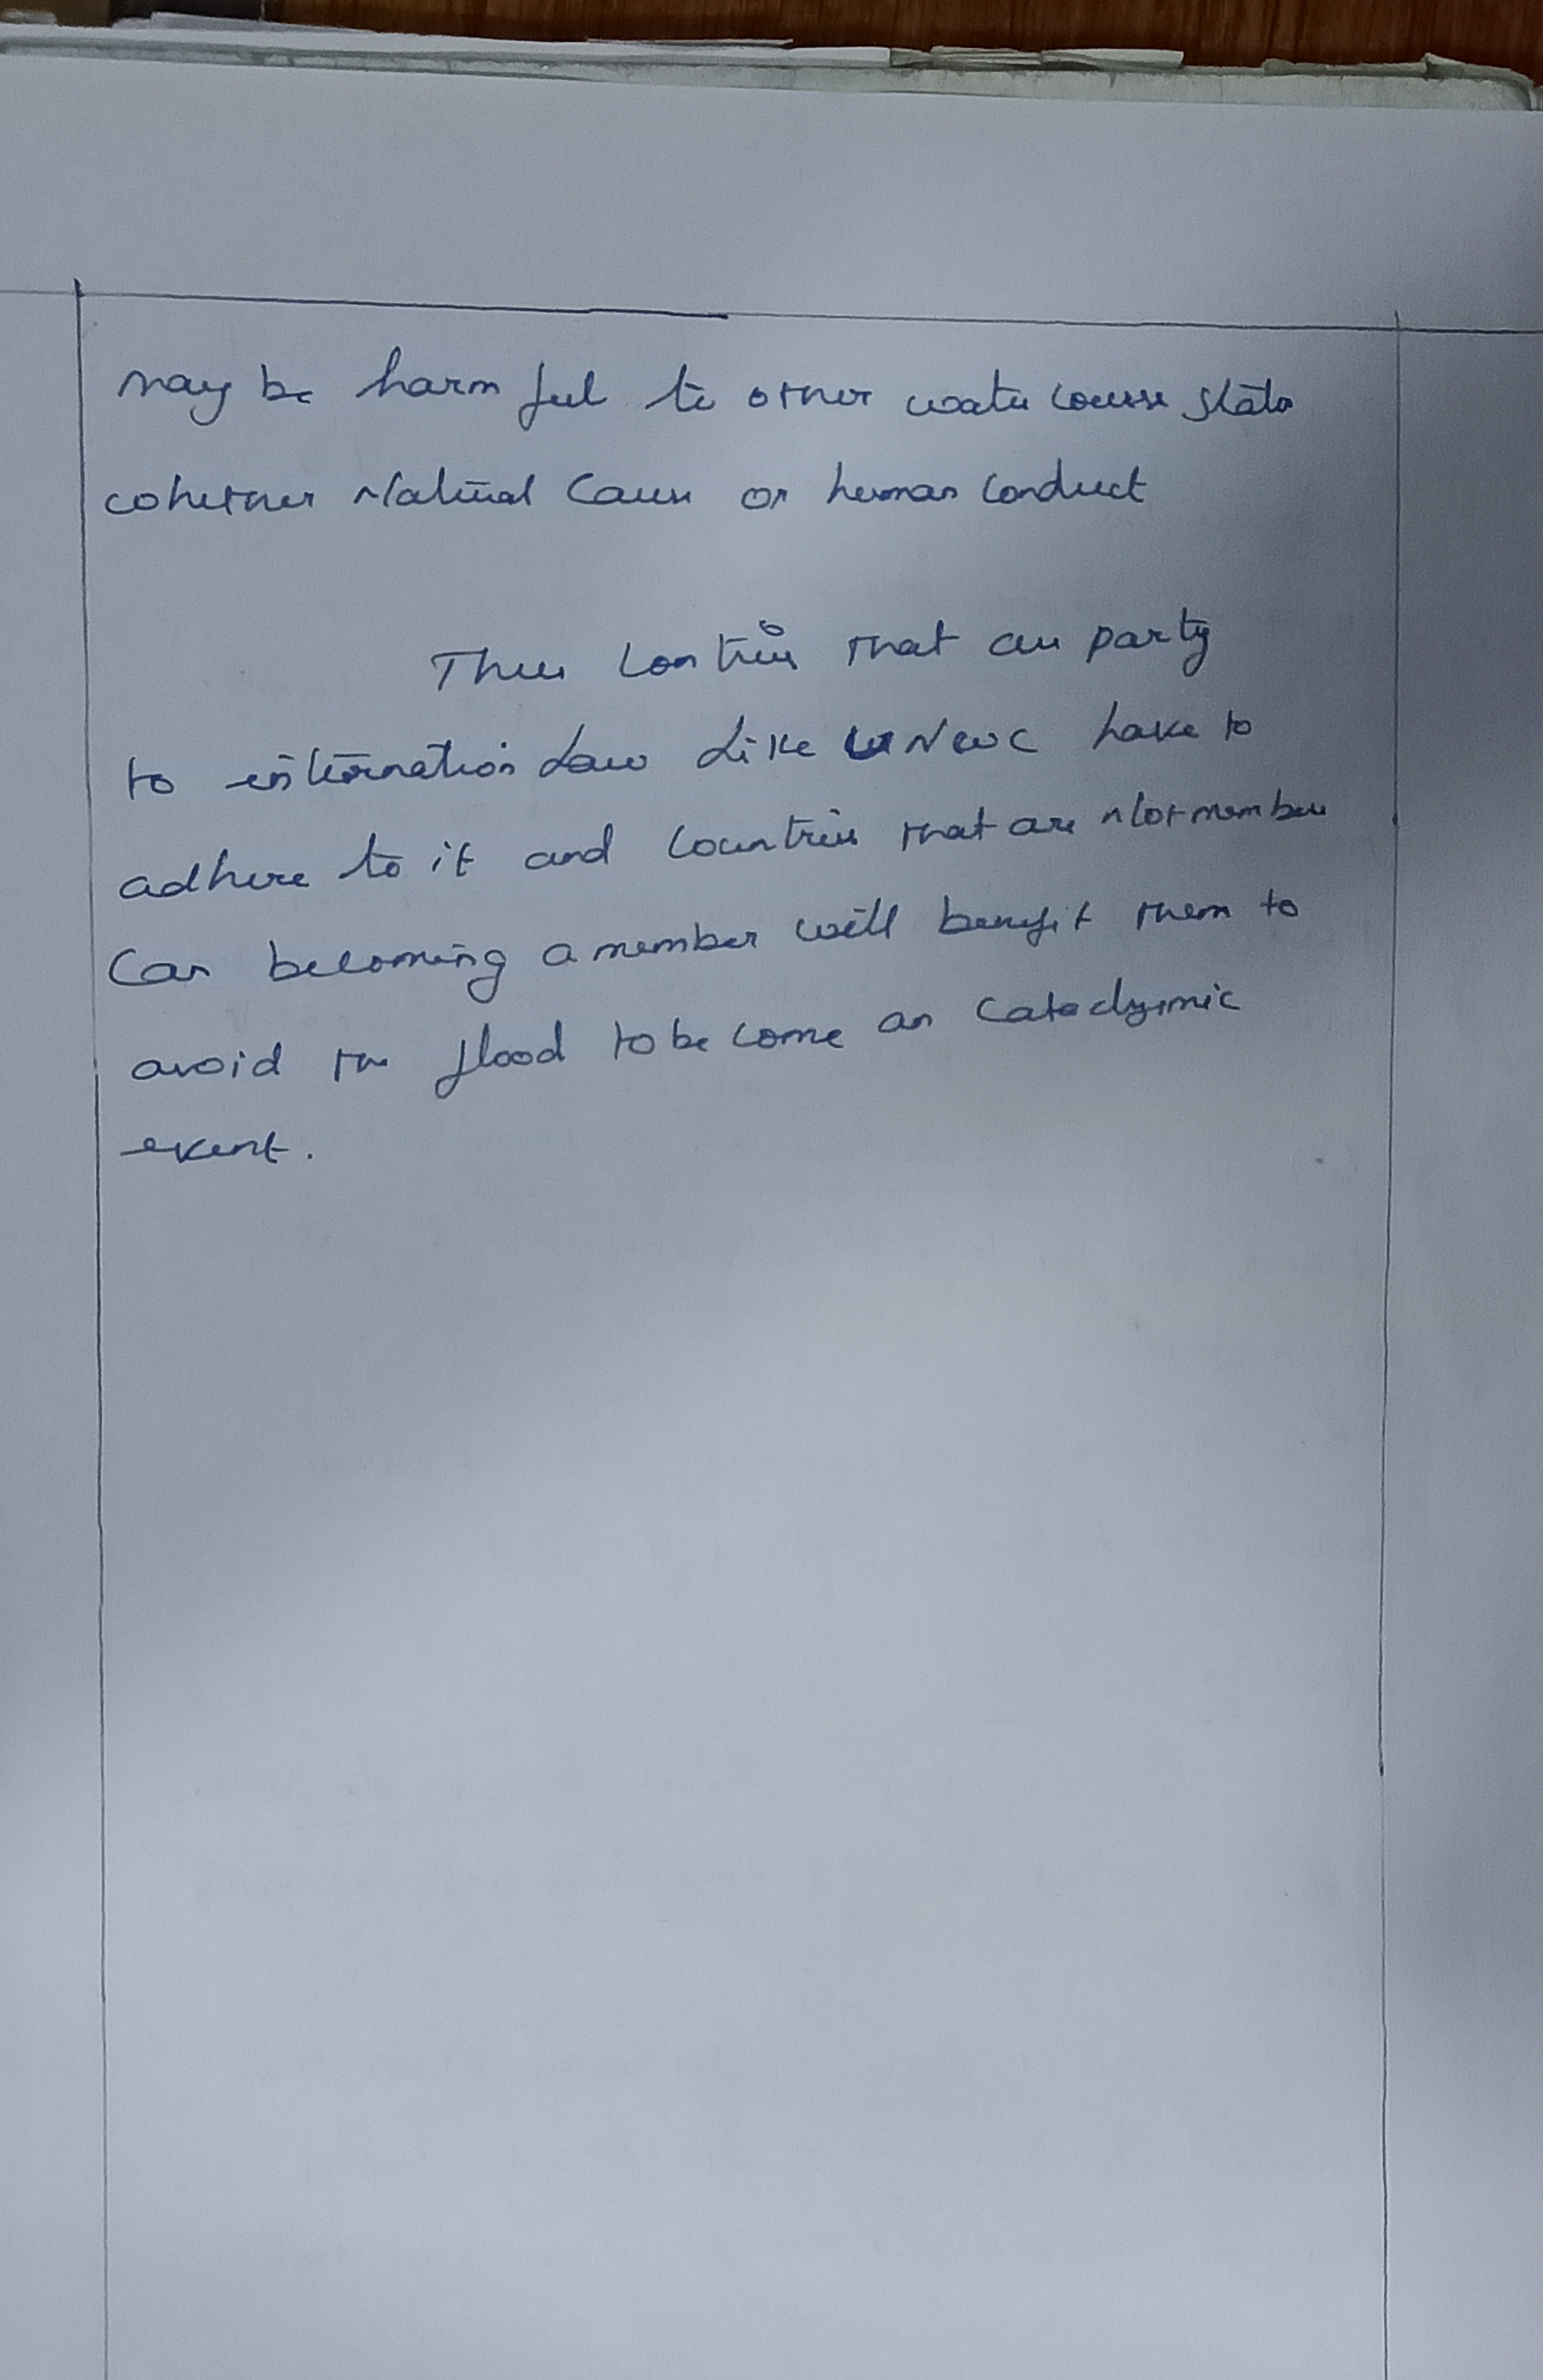 may be harmful to other water course state
whether Natural Cause or human conduct
Thus contries that are party
to internation Law Like UNEWC have to
adhere to it and Countries that are Not member
Can becoming a member will benefit them to
avoid the flood to become an Cataclysmic
event.